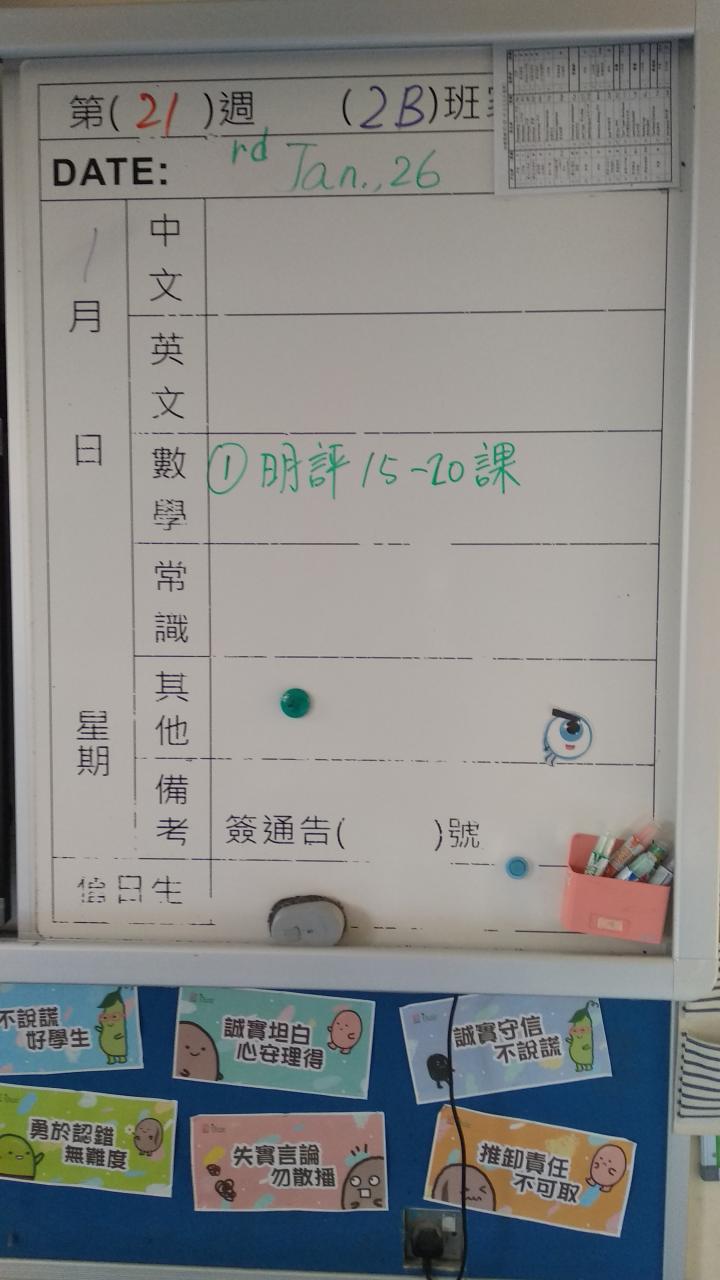 第(21)週 (2B)班
DATE: rd Jan., 26
1月 日 星期
中文
英文
數學 ①明評15-20課
常識
其他
備考 簽通告( )號
值日生
不說謊
好學生
誠實坦白
心安理得
誠實守信
不說謊
勇於認錯
無難度
失實言論
勿散播
推卸責任
不可取